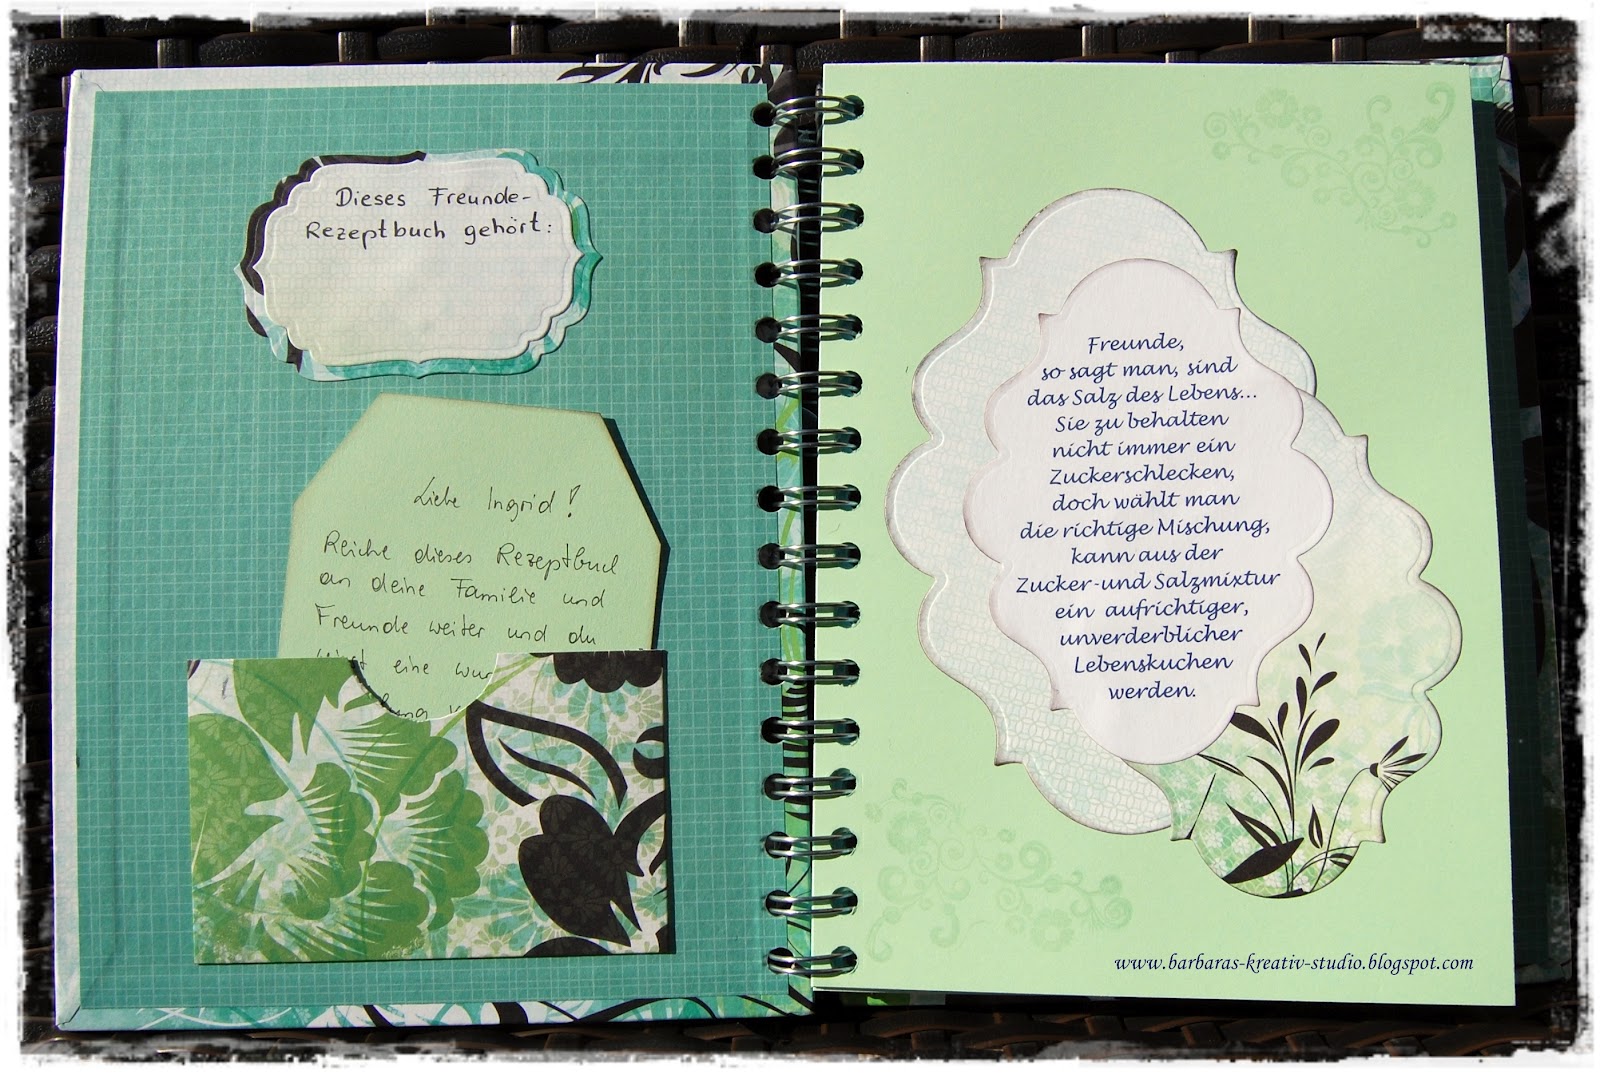 Dieses Freunde-
Rezeptbuch gehört:
Liebe Ingrid!
Reiche dieses Rezeptbuch
an deine Familie und
Freunde weiter und du
eine
Freunde,
so sagt man, sind
das Salz des Lebens...
Sie zu behalten
nicht immer ein
Zuckerschlecken,
doch wählt man
die richtige Mischung,
kann aus der
Zucker-und Salzmixtur
ein aufrichtiger,
unverderblicher
Lebenskuchen
werden.
www.barbaras-kreativ-studio.blogspot.com